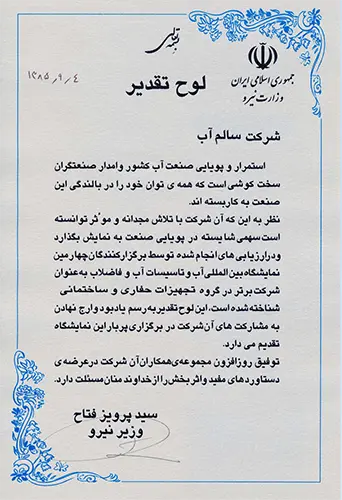 بسمه تعالی
جمهوری اسلامی ایران
وزارت نیرو
۱۳۸۵٫۹٫۴
لوح تقدیر
شرکت سالم آب
استمرار و پویایی صنعت آب کشور وامدار صنعتگران
سخت کوشی است که همه ی توان خود را در بالندگی این
صنعت به کاربسته اند.
نظر به این که آن شرکت با تلاش مجدانه و موثر توانسته
است سهمی شایسته در پویایی صنعت به نمایش بگذارد
و در ارزیابی های انجام شده توسط برگزارکنندگان چهارمین
نمایشگاه بین المللی آب و تاسیسات آب و فاضلاب به عنوان
شرکت برتر در گروه تجهیزات حفاری و ساختمانی
شناخته شده است، این لوح تقدیر به رسم یادبود و ارج نهادن
به مشارکت های آن شرکت در برگزاری پربار این نمایشگاه
تقدیم می دارد.
توفیق روزافزون مجموعه ی همکاران آن شرکت در عرضه ی
دستاوردهای مفید و اثربخش را از خداوند منان مسئلت دارد.
سید پرویز فتاح
وزیر نیرو